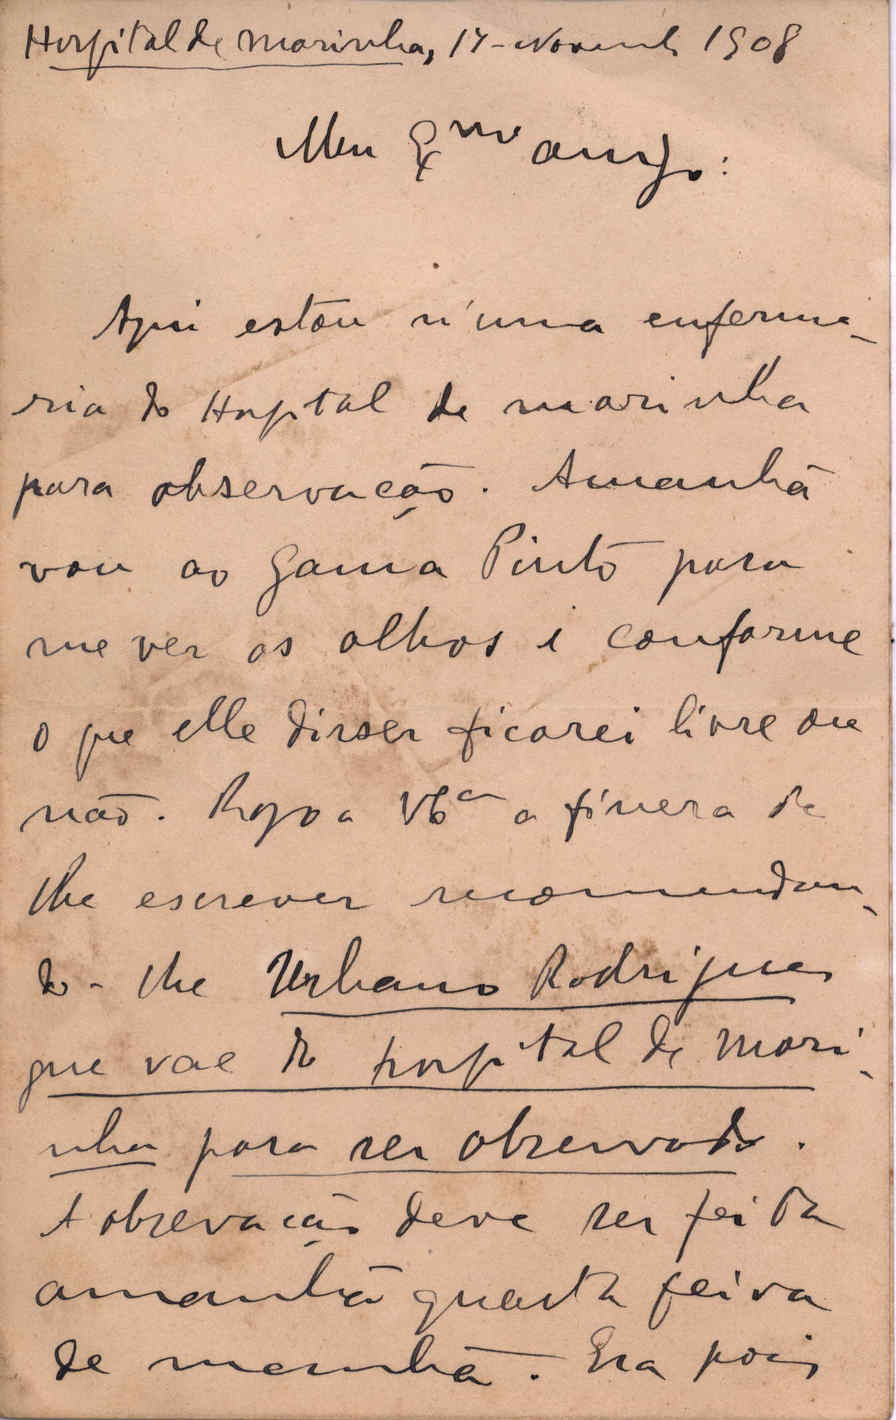 Hospital de Marinha, 17-Novemb. 1908
Meu Exmo amigo:
Aqui estou n'uma enferma-
ria do Hospital de marinha
para observação. Amanhã
vou ao Gama Pinto para
me ver os olhos e conforme
o que elle disser ficarei livre ou
não. Rogo a V. a fineza de
lhe escrever recomendan-
do-lhe Urbano Rodrigues
que vae do hospital de Mari-
nha para ser observado.
A observação deve ser feita
amanhã quarta feira
de manhã. Era pois